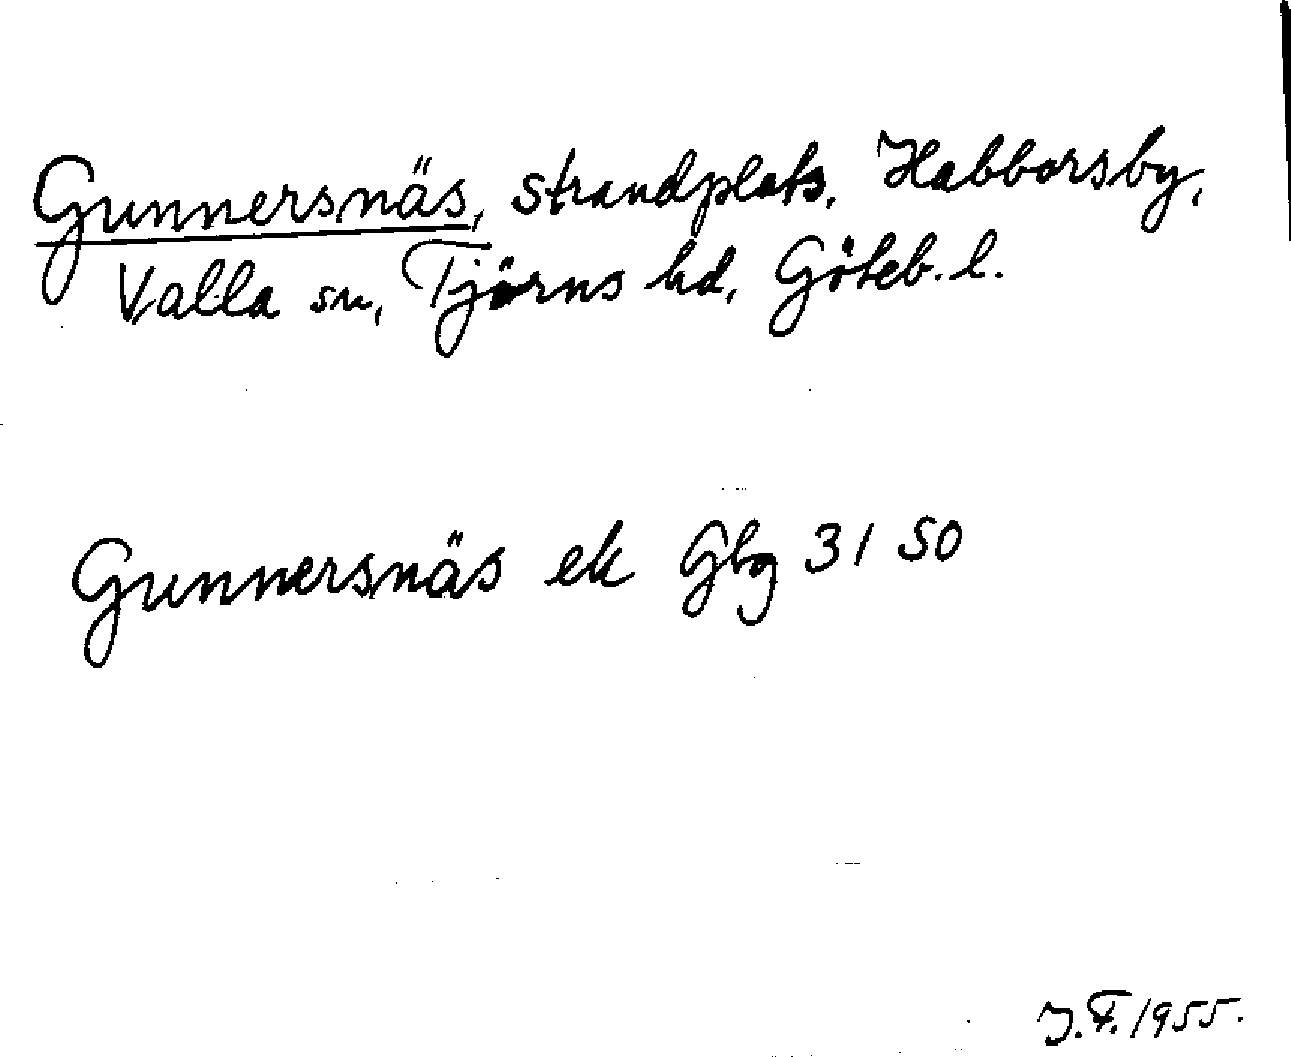 Gunnersnäs, strandplats, Habborsby,
Valla sn, Tjörns hd, Göteb. l.
Gunnersnäs ek Gbg 31 50
J.F. 1955.